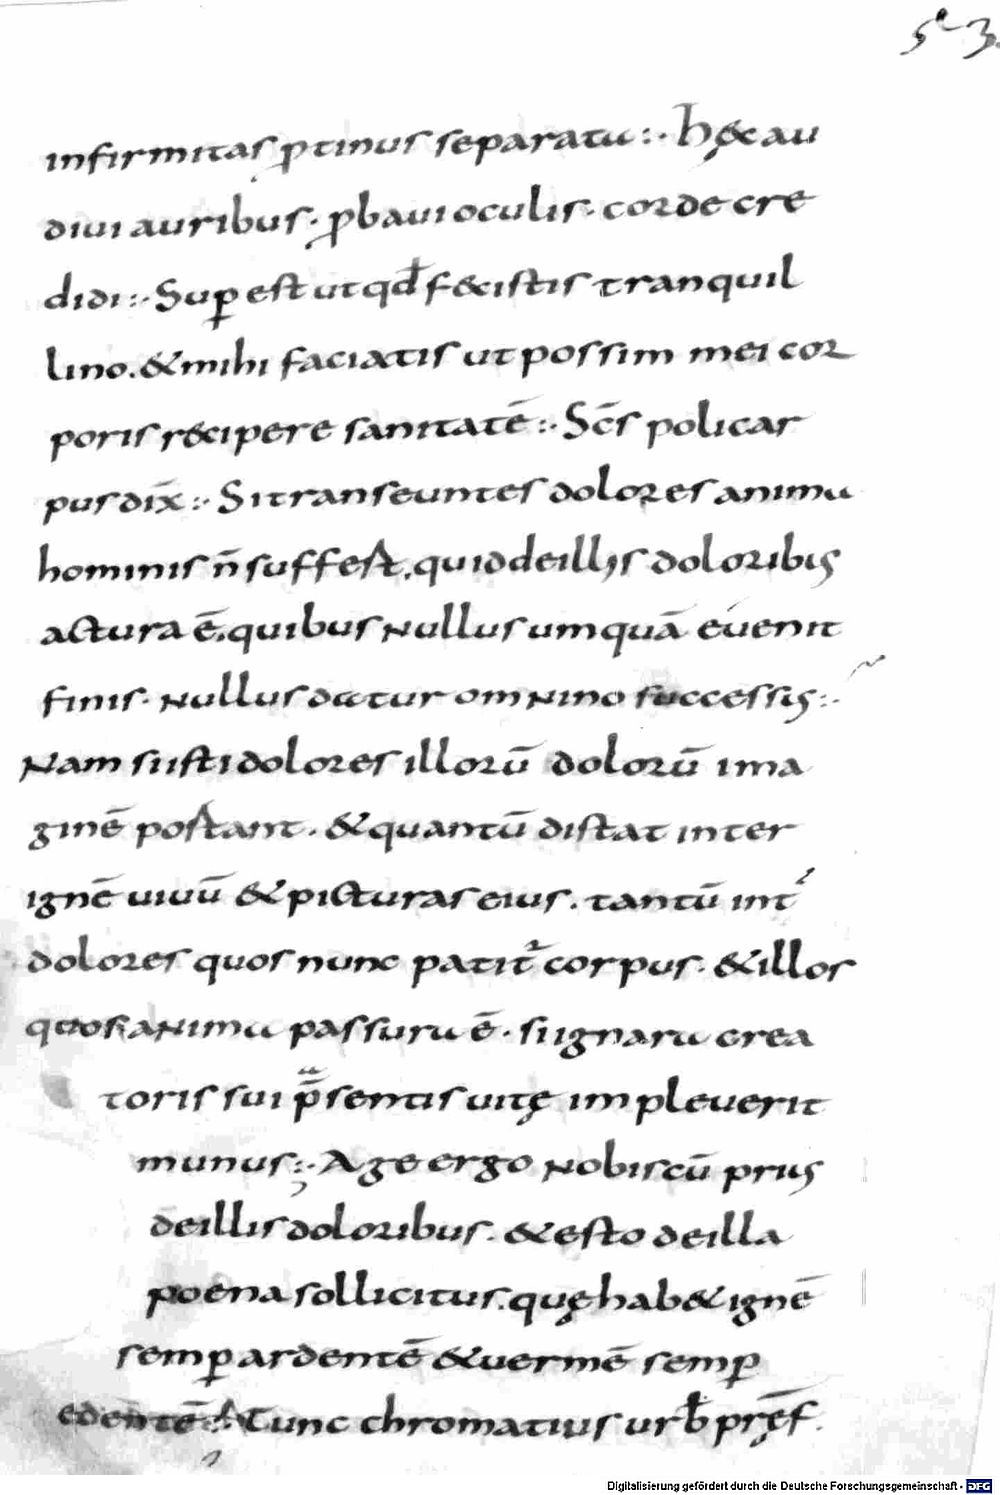 53.
infirmitas ꝓtinus separatur:· hęc & au
diui auribus· ꝓbaui oculis· corde cre
didi:· Suꝑ est ut qđ fecistis tranquil
lino. & mihi faciatis ut possim mei cor
poris recipere sanitatē:· Scs̄ policar
pus dix̄:· Si transeuntes dolores anima
hominis n̄ suffert, quid de illis doloribus
actura ē, quibus nullus umquā euenit
finis· nullus datur omnino successus:·
Nam si isti dolores illorū dolorū ima
ginē portant· & quantū distat inter
ignē uiuū & picturas eius· tantū int̄
dolores quos nunc patit̄ corpus· & illos
quos anima passura ē· si ignara crea
toris sui p̄sentis uitę impleuerit
munus:· Age ergo nobiscū prius
de illis doloribus· & esto de illa
poena sollicitus. quę hab& ignē
semꝑ ardentē & uermē semꝑ
edentē:· Tunc chromatius urb̄ pręf.
Digitalisierung gefördert durch die Deutsche Forschungsgemeinschaft - DFG